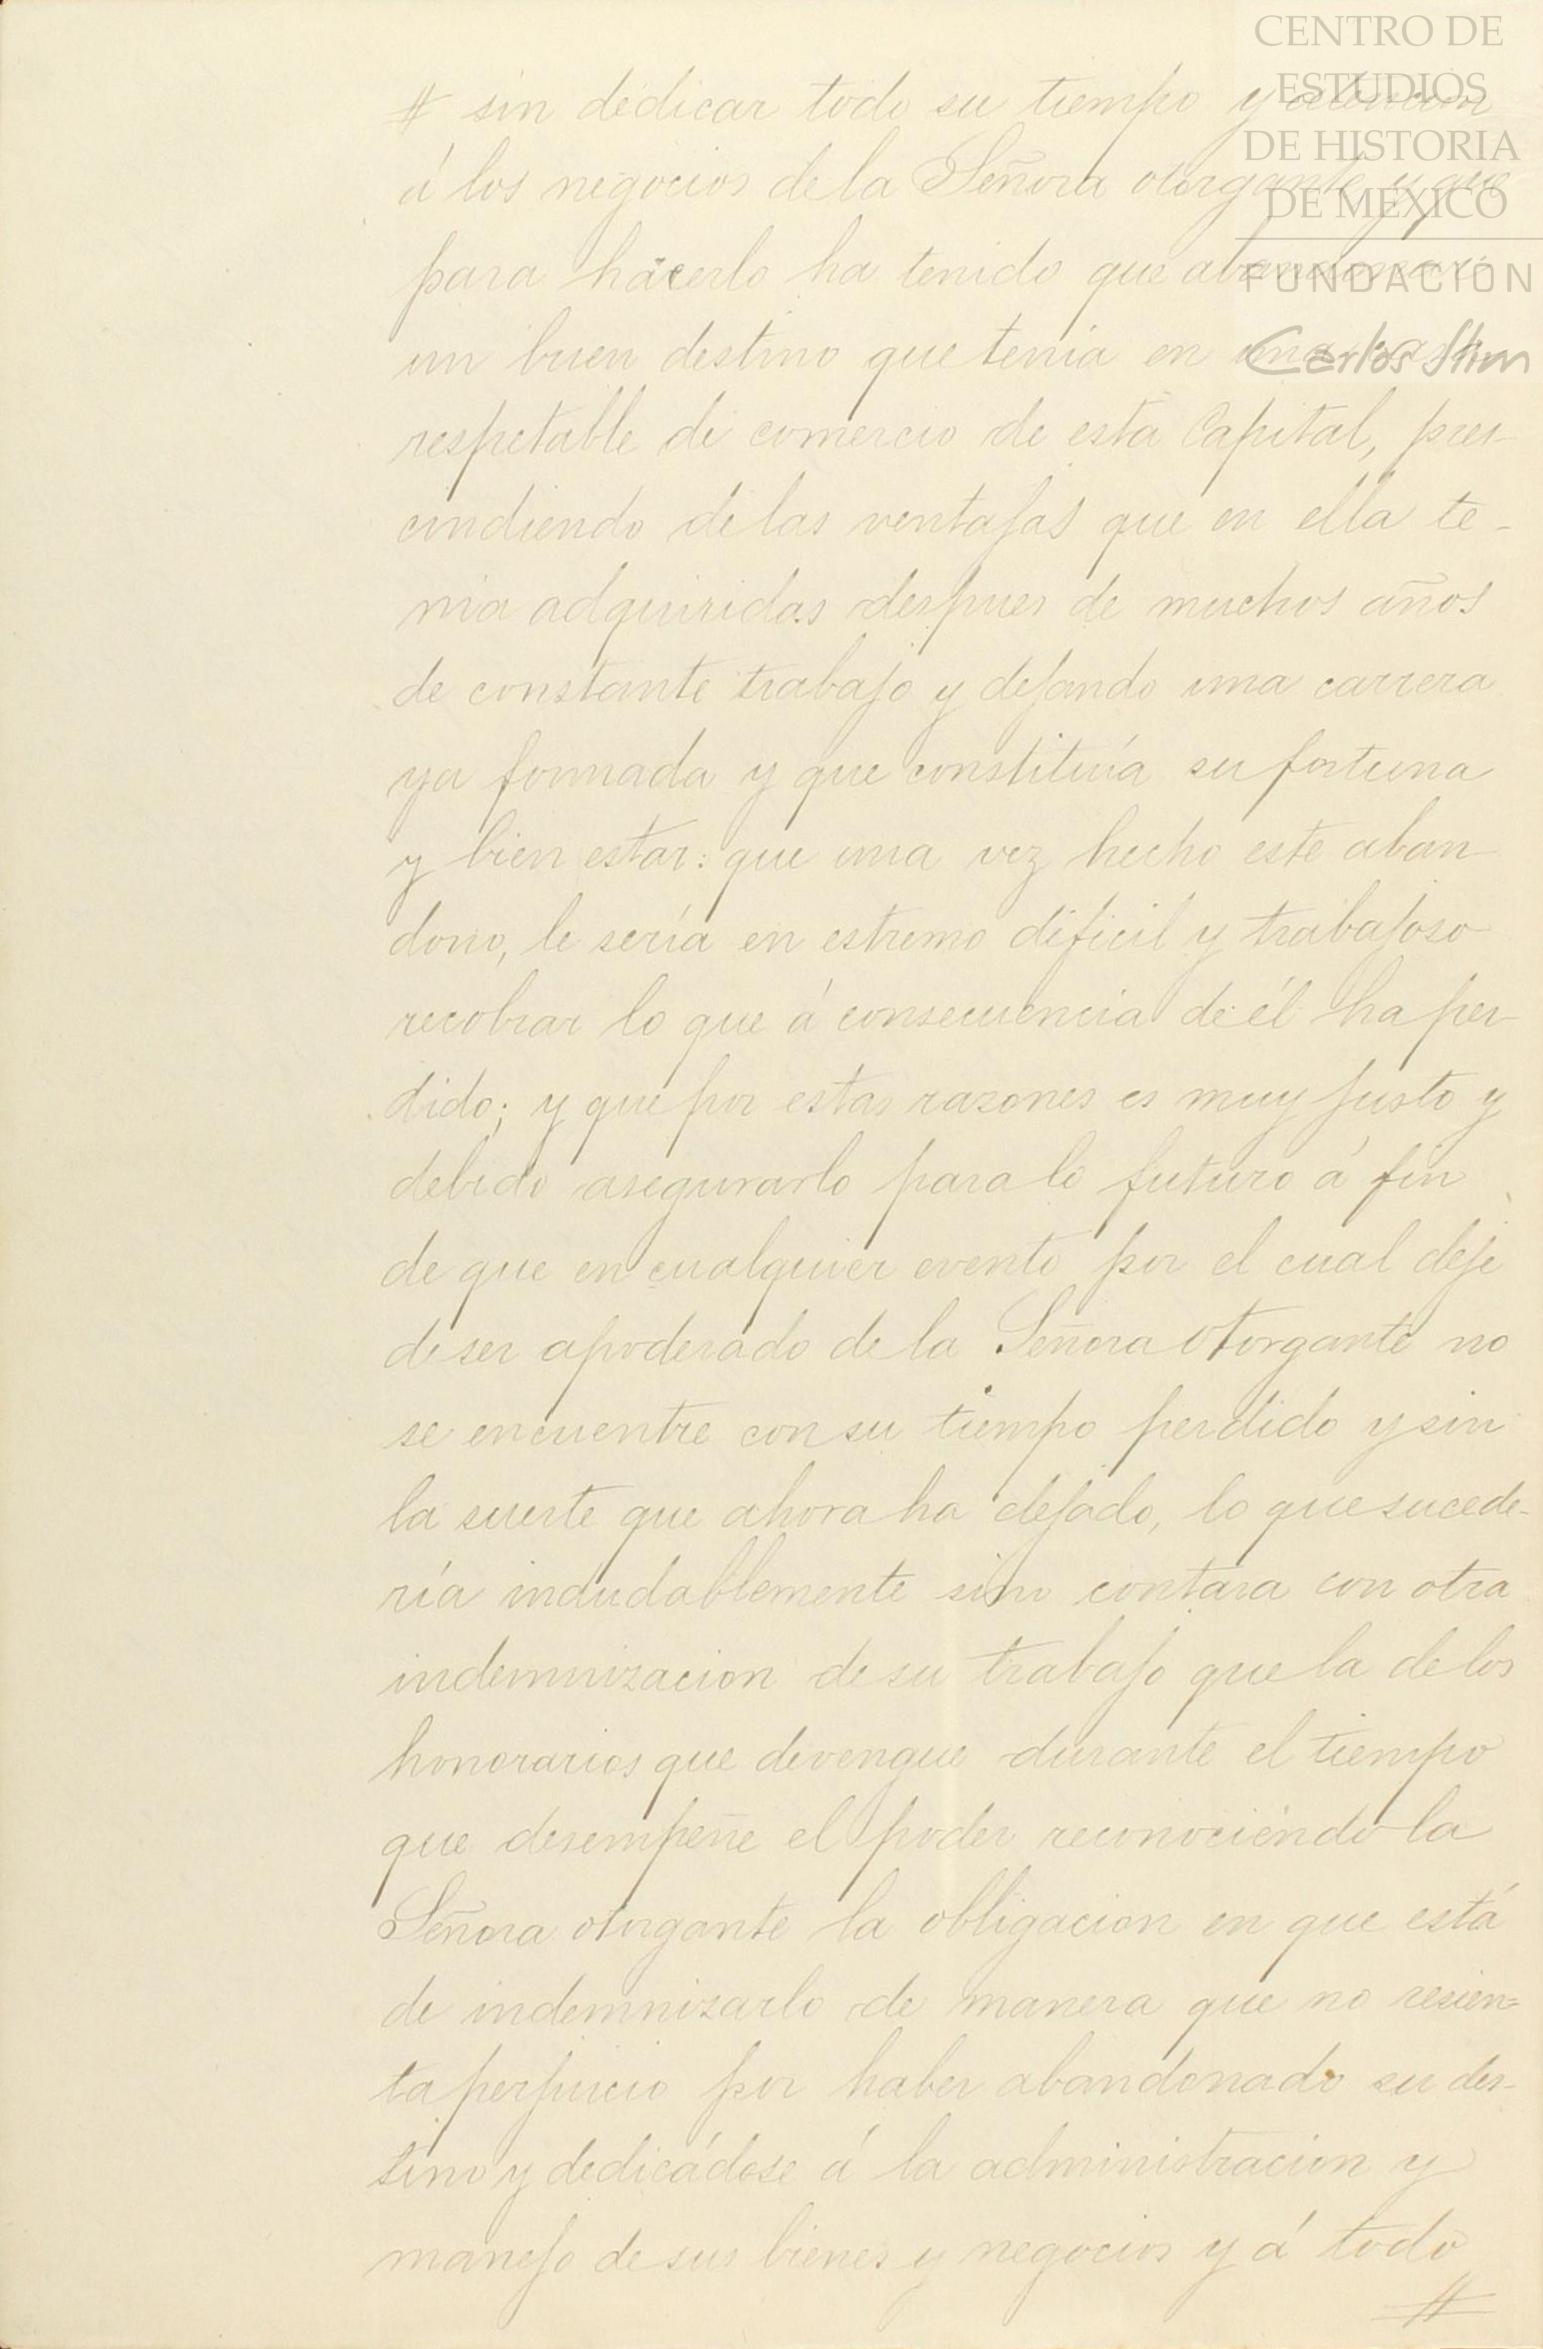 CENTRO DE
ESTUDIOS
DE HISTORIA
DE MÉXICO
FUNDACIÓN
Carlos Slim
# sin dedicar todo su tiempo y atencion
á los negocios de la Señora otorgante y que
para hacerlo ha tenido que abandonar
un buen destino que tenía en una casa
respetable de comercio de esta Capital, pres-
cindiendo de las ventajas que en ella te-
nia adquiridas despues de muchos años
de constante trabajo y dejando una carrera
ya formada y que constituía su fortuna
y bien estar: que una vez hecho este aban
dono, le sería en estremo dificil y trabajoso
recobrar lo que á consecuencia de él ha per-
dido; y que por estas razones es muy justo y
debido asegurarlo para lo futuro á fin
de que en cualquier evento por el cual deje
de ser apoderado de la Señora otorgante no
se encuentre con su tiempo perdido y sin
la suerte que ahora ha dejado, lo que sucede-
ría indudablemente sino contara con otra
indemnizacion de su trabajo que la de los
honorarios que devengue durante el tiempo
que desempeñe el poder reconociéndo la
Señora otorgante la obligacion en que está
de indemnizarlo de manera que no resien=
ta perjuicio por haber abandonado su des-
tino y dedicádose á la administracion y
manejo de sus bienes y negocios y á todo
#